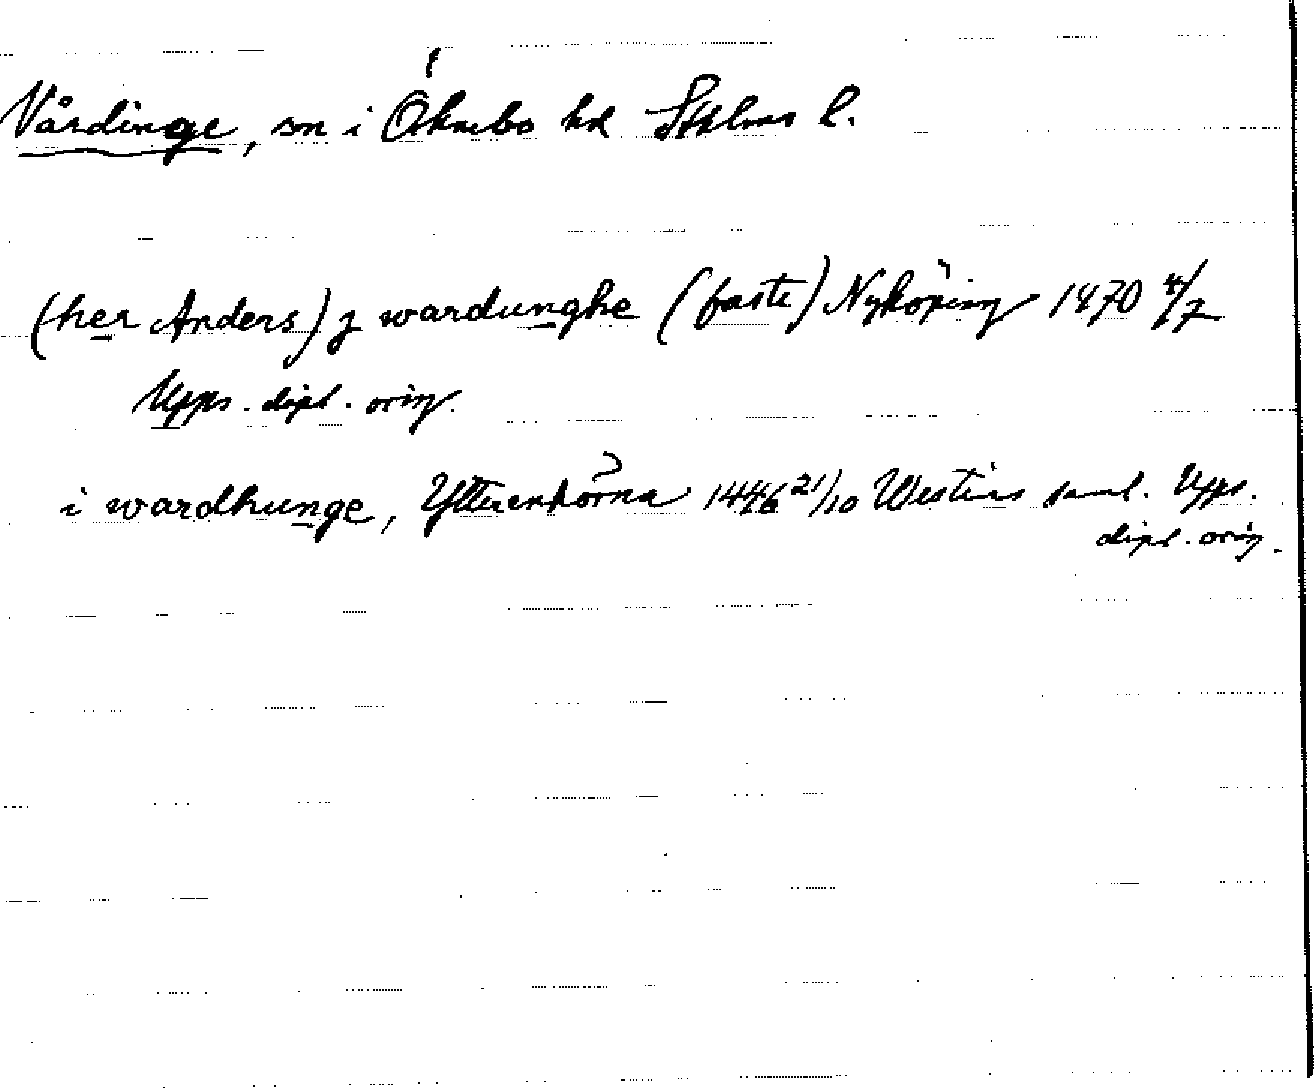 Vårdinge, sn i Öknebo hd Sthlms l.
(her Anders) j wardunghe (faste) Nyköping 1470 4/7
Upps. dipl. orig.
i wardhunge, Ytterenhörna 1446 21/10 Westins saml. Upps.
dipl. orig.